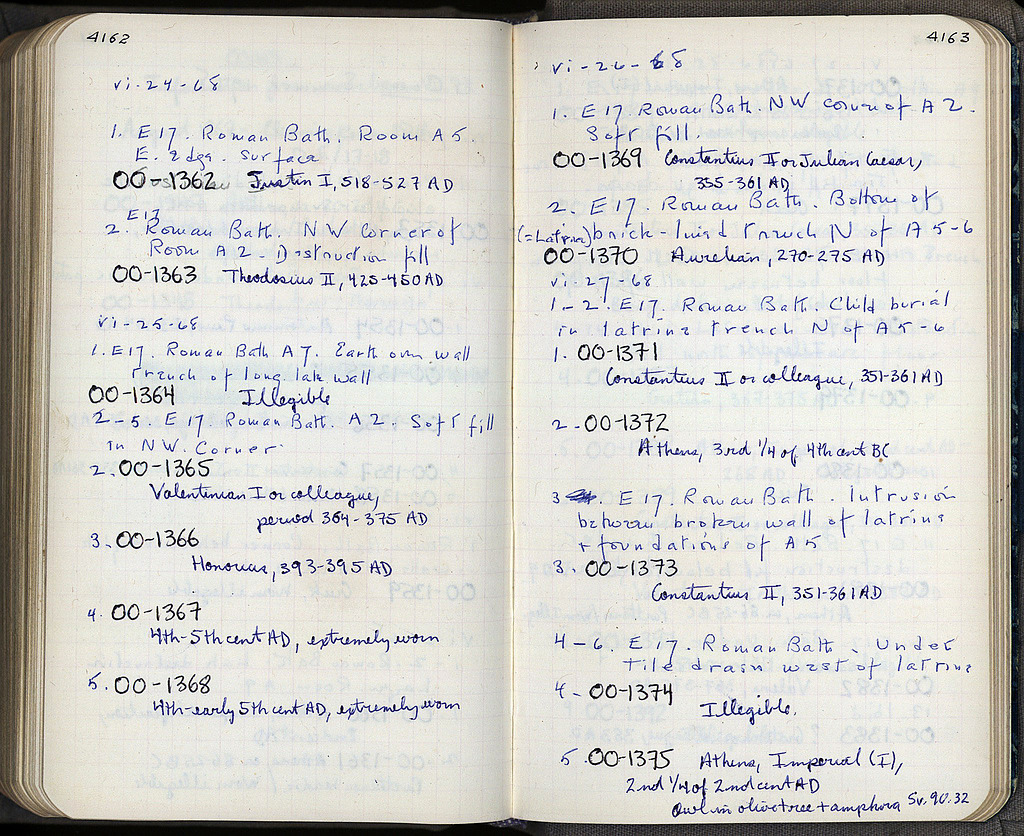 4162
vi-24-68
1. E 17. Roman Bath. Room A 5.
E. edge. surface
OO-1362 Justin I, 518-527 AD
E 17
2. Roman Bath. NW Corner of
Room A 2 - Destruction fill
OO-1363 Theodosius II, 425-450 AD
vi-25-68
1. E 17. Roman Bath A 7. Earth over wall
trench of long late wall
OO-1364 Illegible
2-5. E 17. Roman Bath. A 2. Soft fill
in NW. Corner.
2. OO-1365
Valentinian I or colleague,
period 364-375 AD
3. OO-1366
Honorius, 393-395 AD
4. OO-1367
4th-5th cent AD, extremely worn
5. OO-1368
4th-early 5th cent AD, extremely worn
4163
vi-26-68
1. E 17. Roman Bath. NW Corner of A 2.
Soft fill.
OO-1369 Constantius II or Julian Caesar,
355-361 AD
2. E 17. Roman Bath. Bottom of
(=Latrine) brick-lined trench N of A 5-6
OO-1370 Aurelian, 270-275 AD
vi-27-68
1-2. E 17. Roman Bath. Child burial
in latrine trench N of A 5-6
1. OO-1371
Constantius II or colleague, 351-361 AD
2. OO-1372
Athens, 3rd 1/4 of 4th cent BC
3. E 17. Roman Bath. Intrusion
between broken wall of latrine
+ foundations of A 5
3. OO-1373
Constantius II, 351-361 AD
4-6. E 17. Roman Bath. Under
tile drain west of latrine
4. OO-1374
Illegible.
5. OO-1375 Athens, Imperial (I),
2nd 1/4 of 2nd cent AD
Owl in olive tree + amphora Sv. 90.32